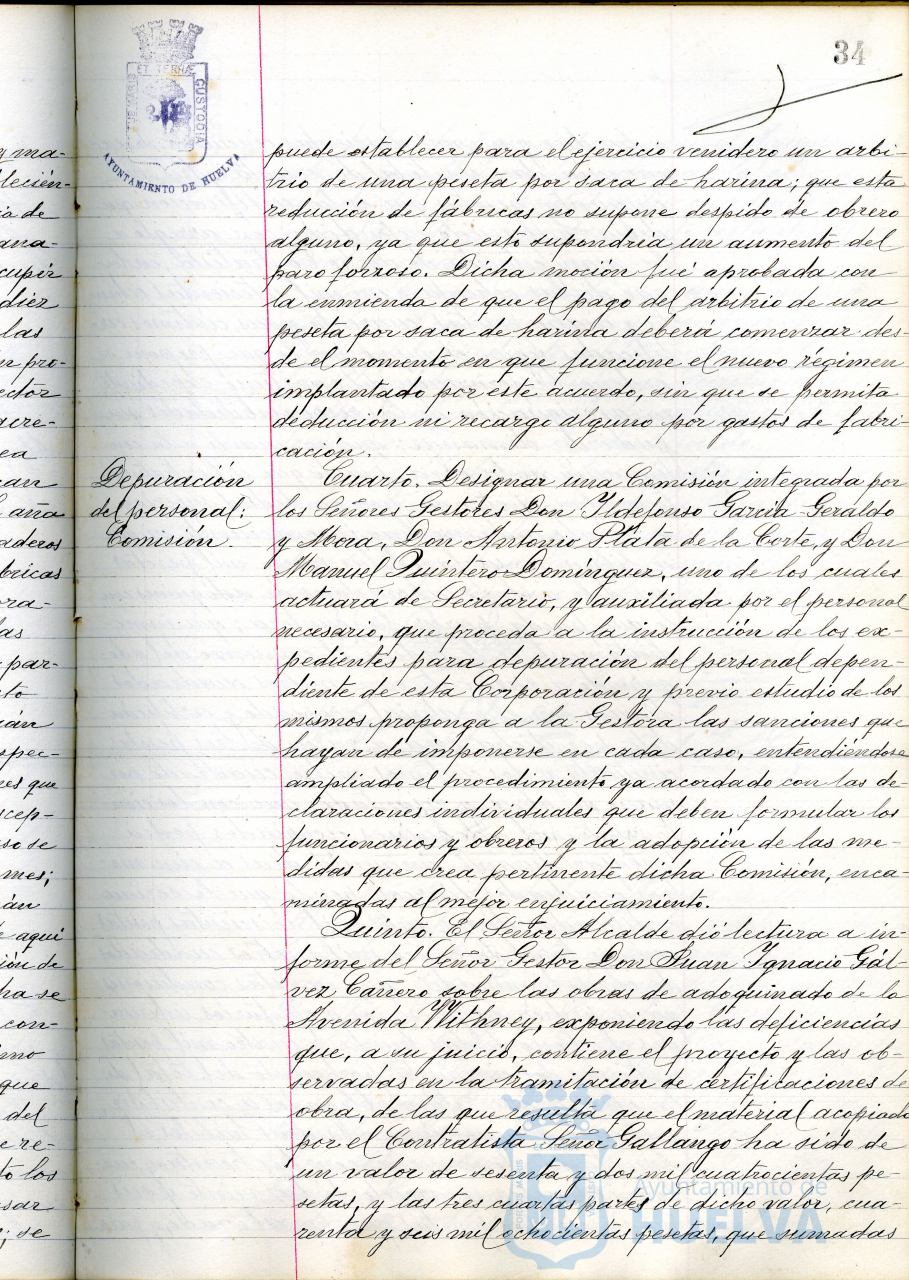 34
AYUNTAMIENTO DE HUELVA
CUSTODIA
puede establecer para el ejercicio venidero un arbi-
trio de una peseta por saca de harina; que esta
reducción de fábricas no supone despido de obrero
alguno, ya que esto supondría un aumento del
paro forzoso. Dicha moción fué aprobada con
la enmienda de que el pago del arbitrio de una
peseta por saca de harina deberá comenzar des-
de el momento en que funcione el nuevo régimen
implantado por este acuerdo, sin que se permita
deducción ni recargo alguno por gastos de fabri-
cación.
Depuración
del personal:
Comisión.
Cuarto. Designar una Comisión integrada por
los Señores Gestores Don Ildefonso Garcia-Geraldo
y Mora, Don Antonio Plata de la Corte, y Don
Manuel Quintero Domínguez, uno de los cuales
actuará de Secretario, y auxiliada por el personal
necesario, que proceda a la instrucción de los ex-
pedientes para depuración del personal depen-
diente de esta Corporación y previo estudio de los
mismos proponga a la Gestora las sanciones que
hayan de imponerse en cada caso, entendiéndose
ampliado el procedimiento ya acordado con las de-
claraciones individuales que deben formular los
funcionarios y obreros y la adopción de las me-
didas que crea pertinente dicha Comisión, enca-
minadas al mejor enjuiciamiento.
Quinto. El Señor Alcalde dió lectura a in-
forme del Señor Gestor Don Juan Ignacio Gál-
vez Cañero sobre las obras de adoquinado de la
Avenida Withney, exponiendo las deficiencias
que, a su juicio, contiene el proyecto y las ob-
servadas en la tramitación de certificaciones de
obra, de las que resulta que el material acopiado
por el Contratista Señor Gallango ha sido de
un valor de sesenta y dos mil cuatrocientas pe-
setas, y las tres cuartas partes de dicho valor, cua-
renta y seis mil ochocientas pesetas, que sumadas
Ayuntamiento de
HUELVA
y ma-
lecién-
ia de
ana-
cupér
diez
las
n pro-
ector
acre-
ea
can
aña
aderos
bricas
ora-
las
par-
to
án
spec-
nes que
scep-
so se
mes;
án
e aquí
ión de
ha se
con-
imo
que
del
e re-
to los
sar
; se